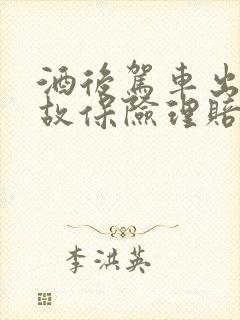 酒後駕車出
故保險理賠
李洪英